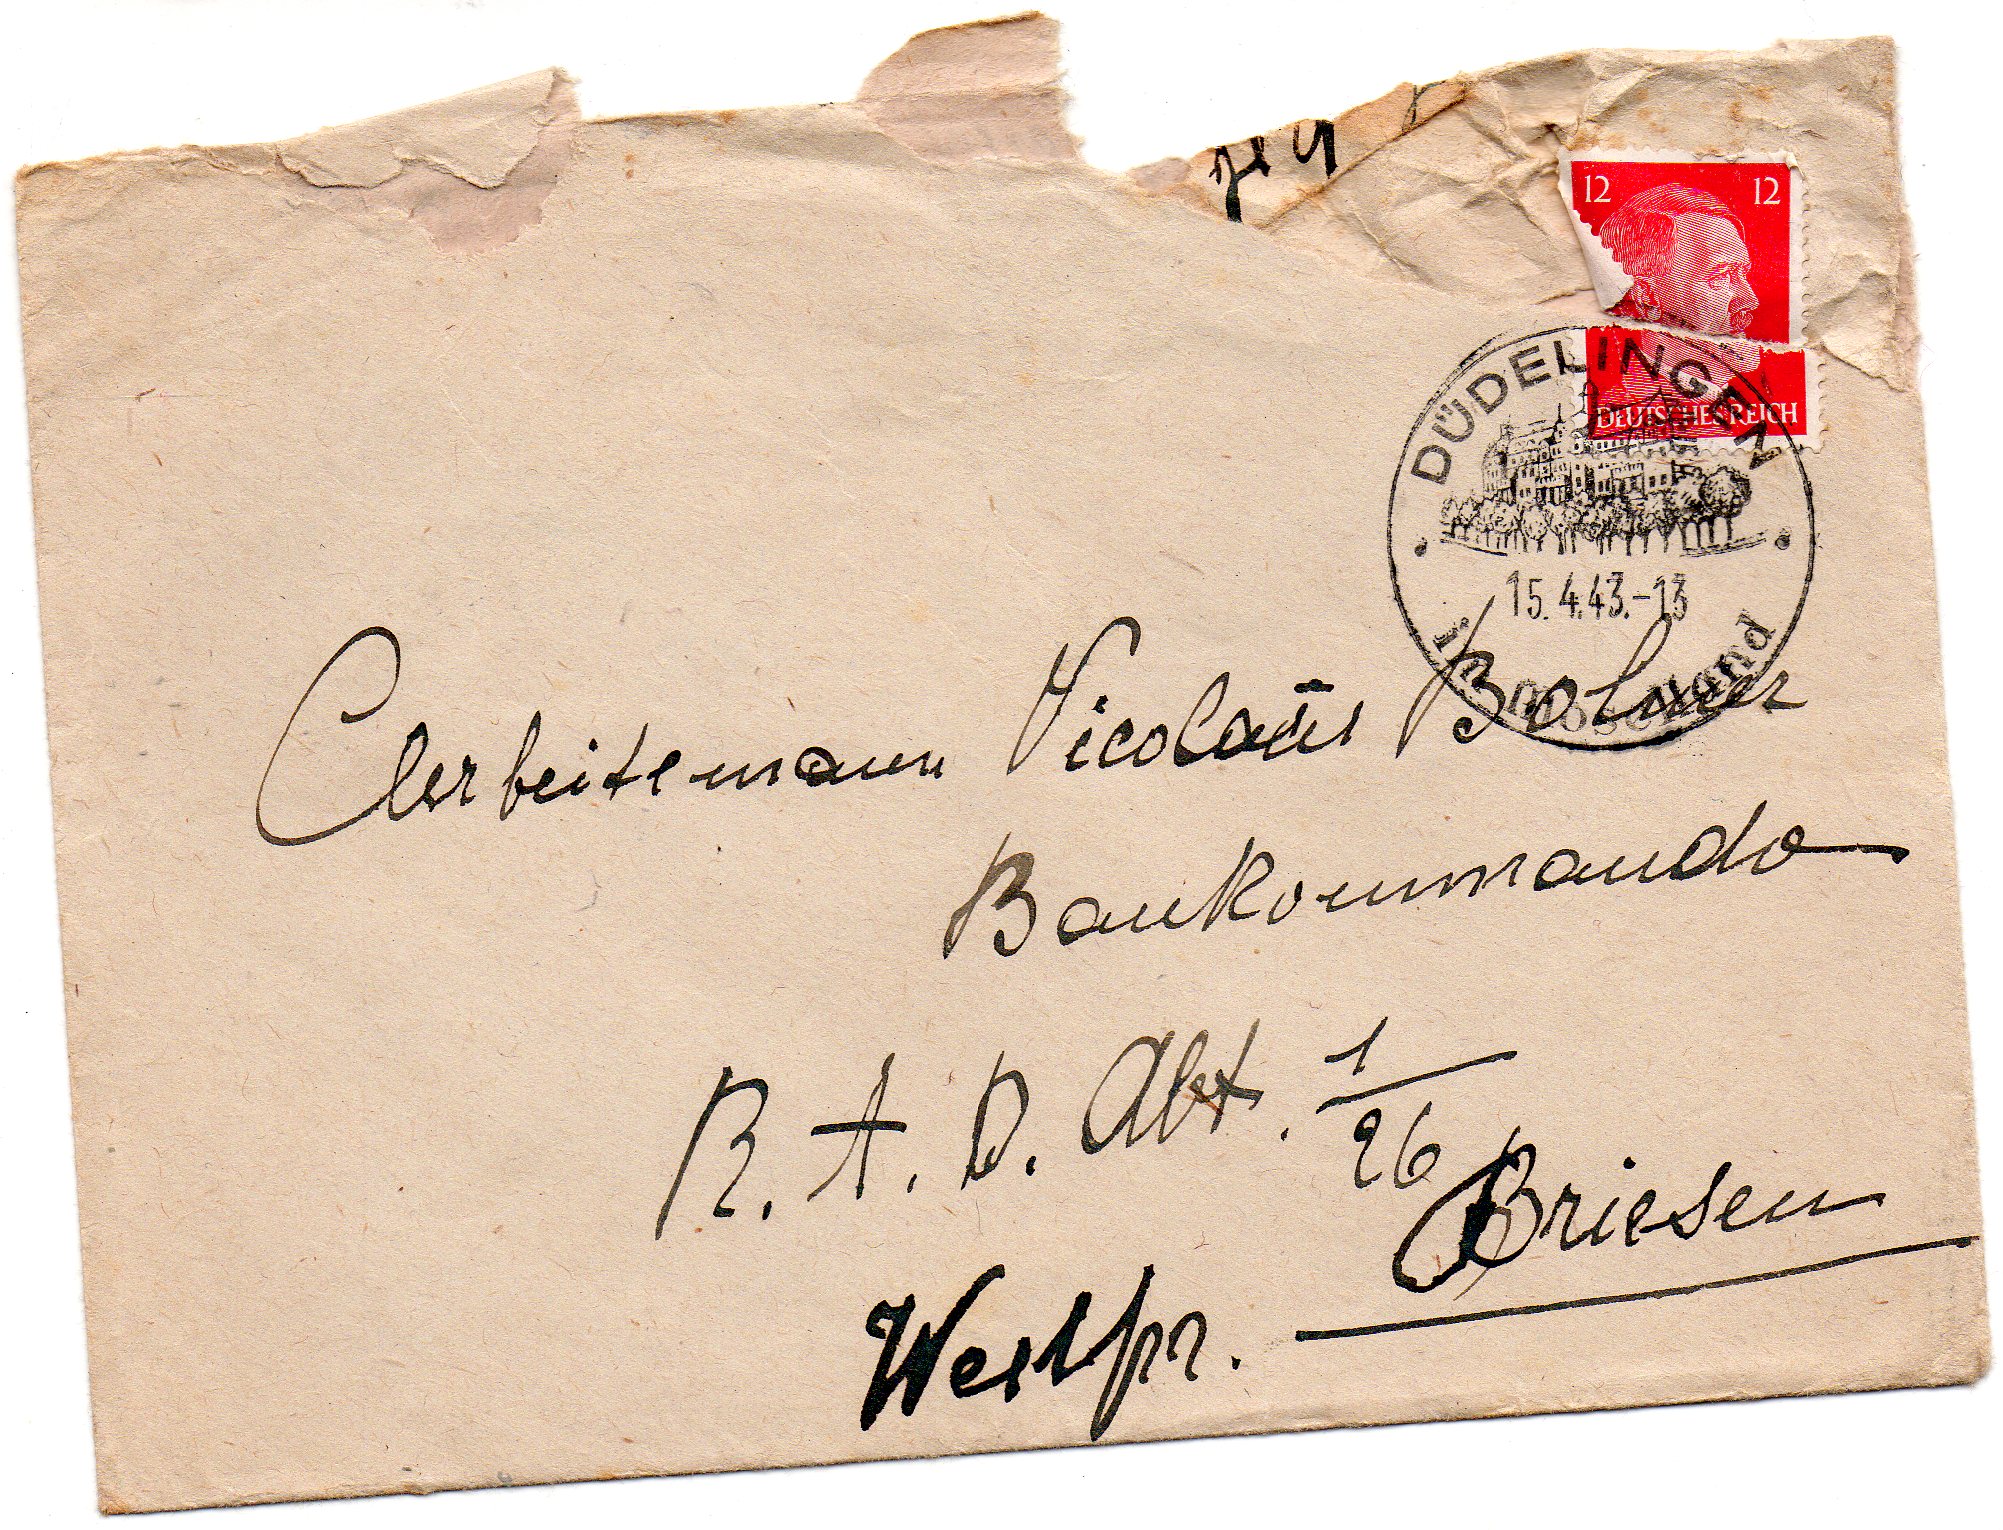 12 12
DEUTSCHES REICH
DÜDELINGEN
15.4.43.-13
im Moselland
Arbeitsmann Nicolaüs Bohner
Baukommando
R.A.D. Abt. 1/96
Briesen
Westpr.